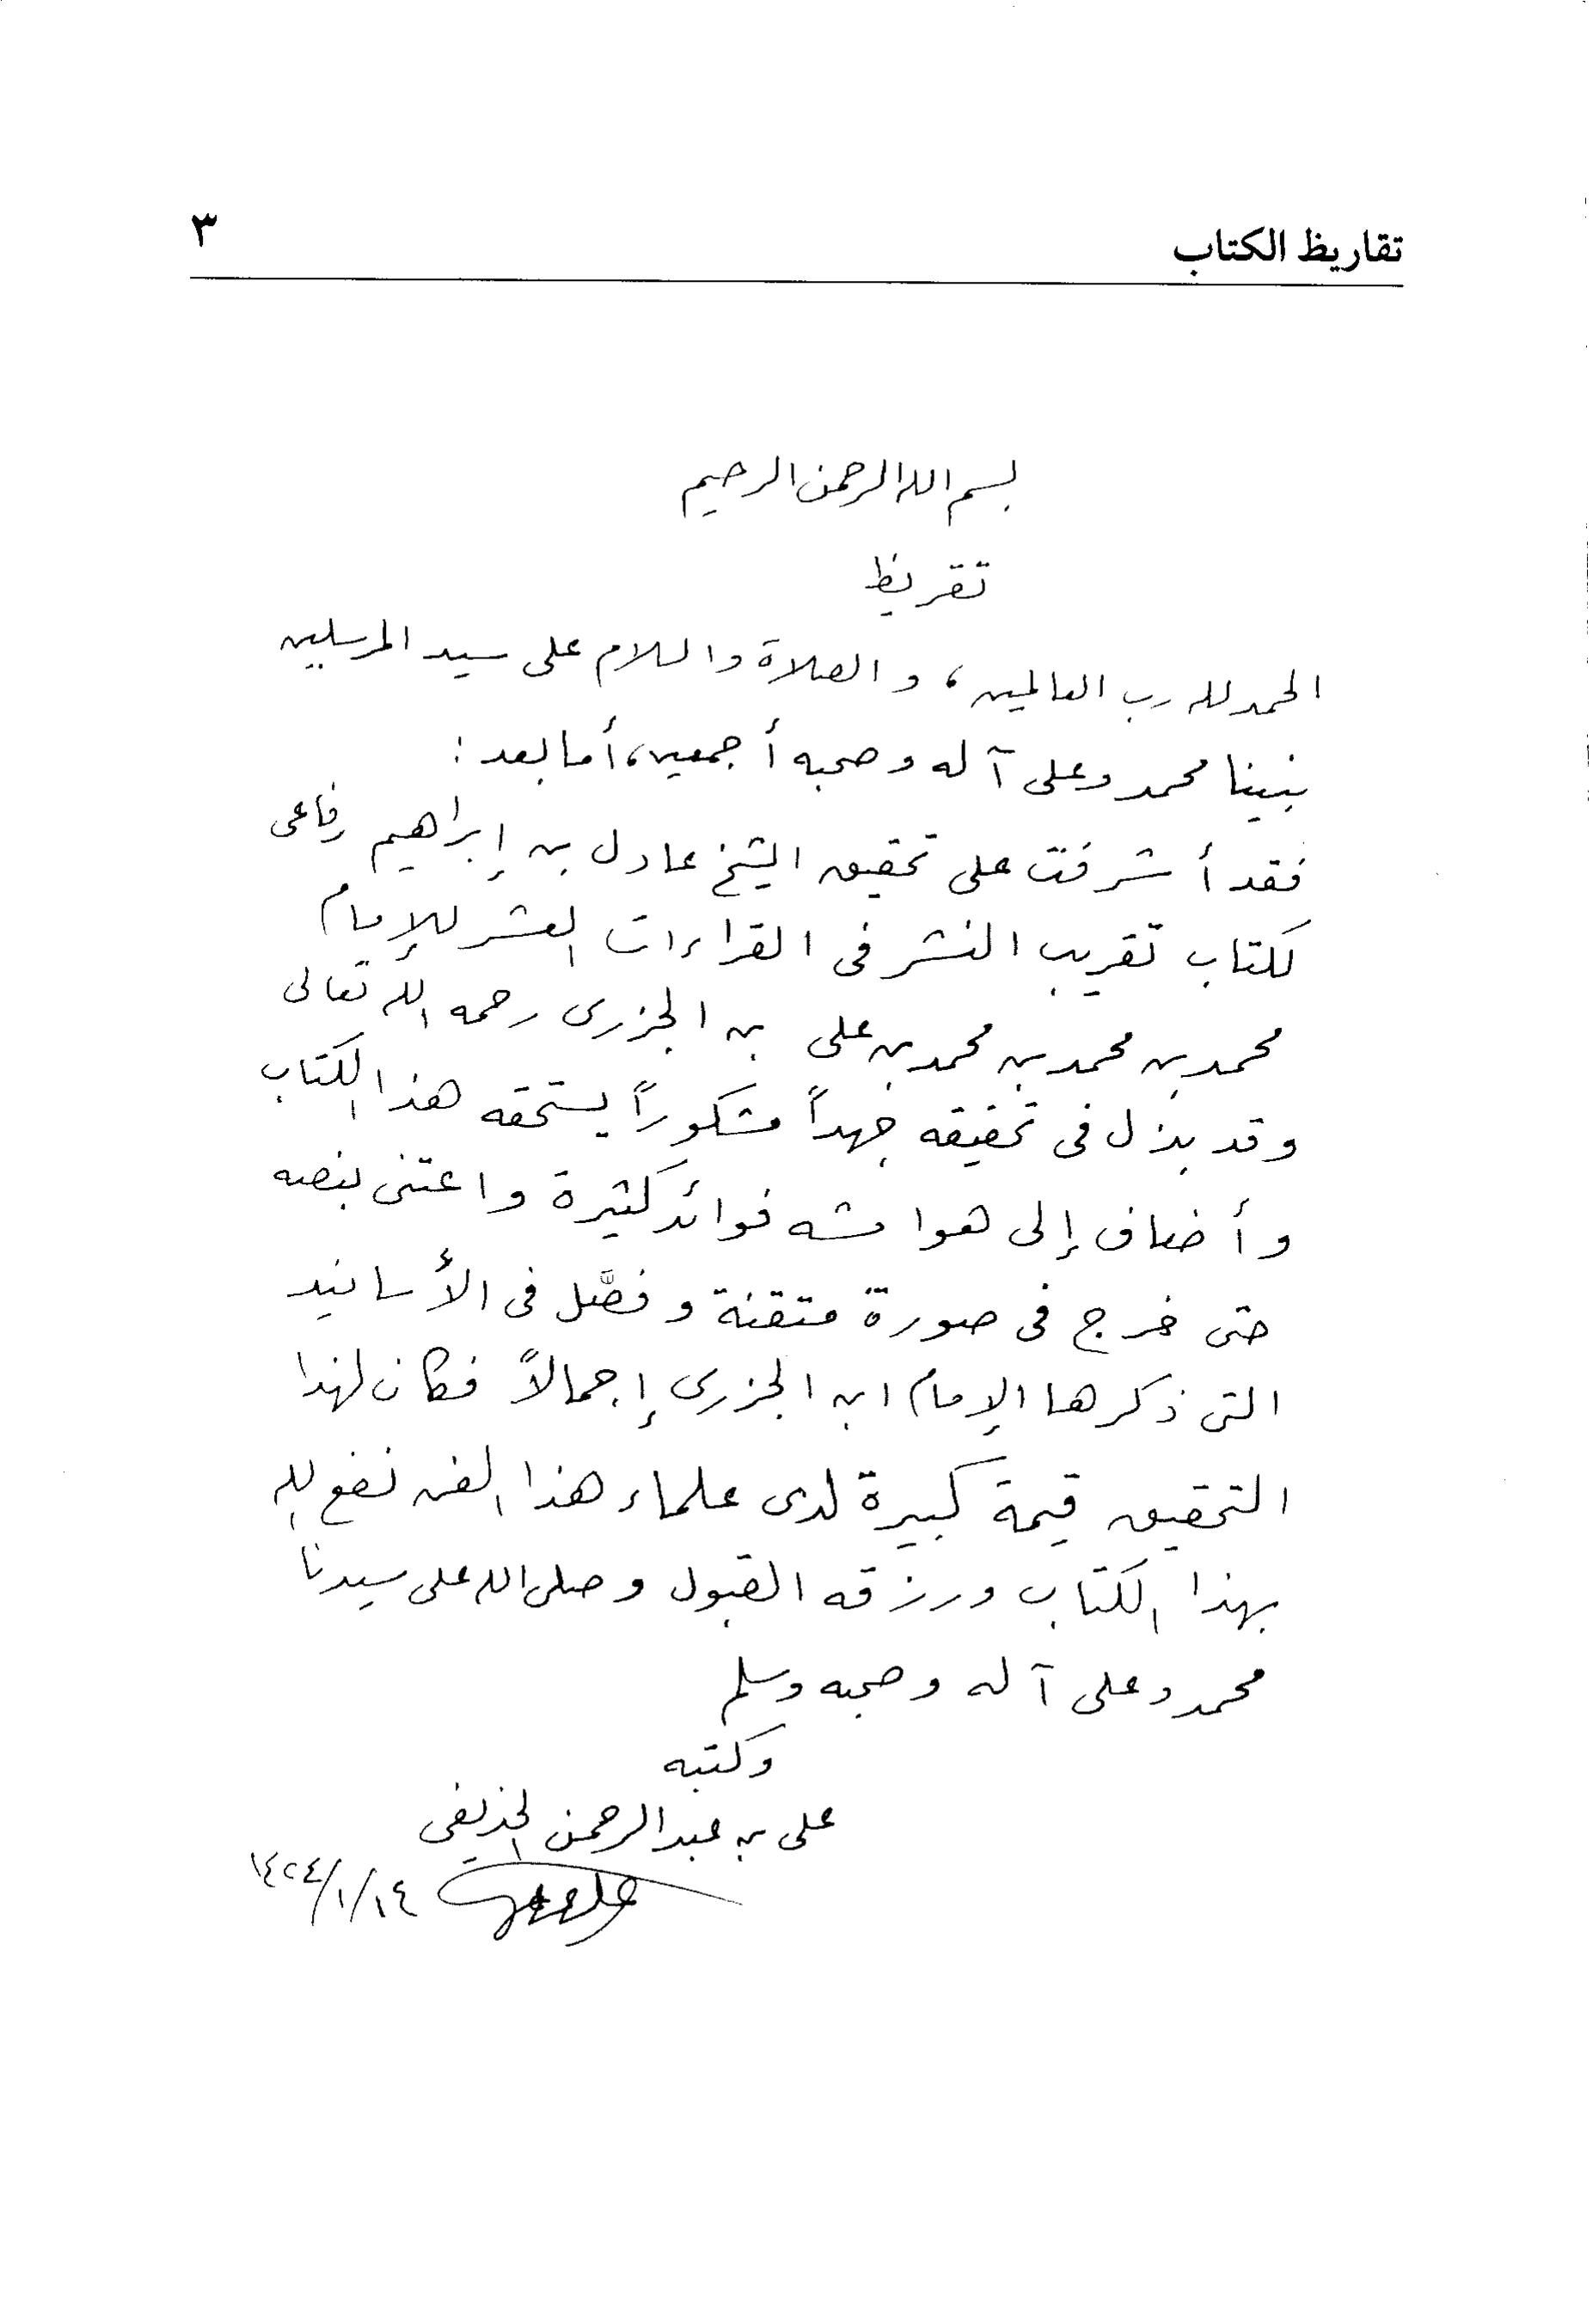 تقاريظ الكتاب ٣
بسم الله الرحمن الرحيم
تقريظ
الحمد لله رب العالمين، والصلاة والسلام على سيد المرسلين
نبينا محمد وعلى آله وصحبه أجمعين، أما بعد:
فقد أشرفت على تحقيق الشيخ عادل بن إبراهيم رفاعى
لكتاب تقريب النشر فى القراءات العشر للإمام
محمد بن محمد بن محمد بن على بن الجزرى رحمه الله تعالى
وقد بذل فى تحقيقه جهداً مشكوراً يستحقه هذا الكتاب
وأضاف إلى هوامشه فوائد كثيرة واعتنى بنصه
حتى خرج فى صورة متقنة وفصَّل فى الأسانيد
التى ذكرها الإمام ابن الجزرى إجمالاً فكان لهذا
التحقيق قيمة كبيرة لدى علماء هذا الفن نفع الله
بهذا الكتاب ورزقه القبول وصلى الله على سيدنا
محمد وعلى آله وصحبه وسلم
وكتبه
على بن عبدالرحمن الحذيفى
١٤٢٤/١/١٤